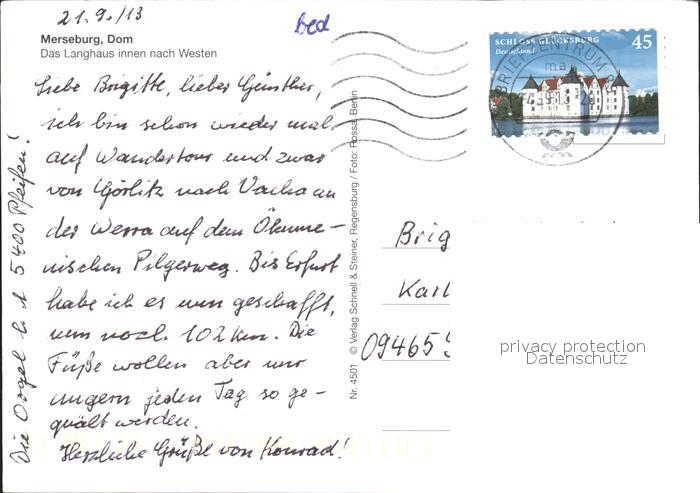 21.9./13
bed
Merseburg, Dom
Das Langhaus innen nach Westen
Liebe Brigitte, lieber Günther,
ich bin schon wieder mal
auf Wandertour und zwar
von Görlitz nach Vacha an
der Werra auf dem Ökume-
nischen Pilgerweg. Bis Erfurt
habe ich es nun geschafft,
nun noch 102 km. Die
Füße wollen aber nur
ungern jeden Tag so ge-
quält werden.
Herzliche Grüße von Konrad!
Die Orgel hat 5400 Pfeifen!
Nr. 4501 © Verlag Schnell & Steiner, Regensburg / Foto: Rossa, Berlin
SCHLOSS GLÜCKSBURG
Deutschland
45
BRIEFZENTRUM
Brig
Karl
09465
privacy protection
Datenschutz